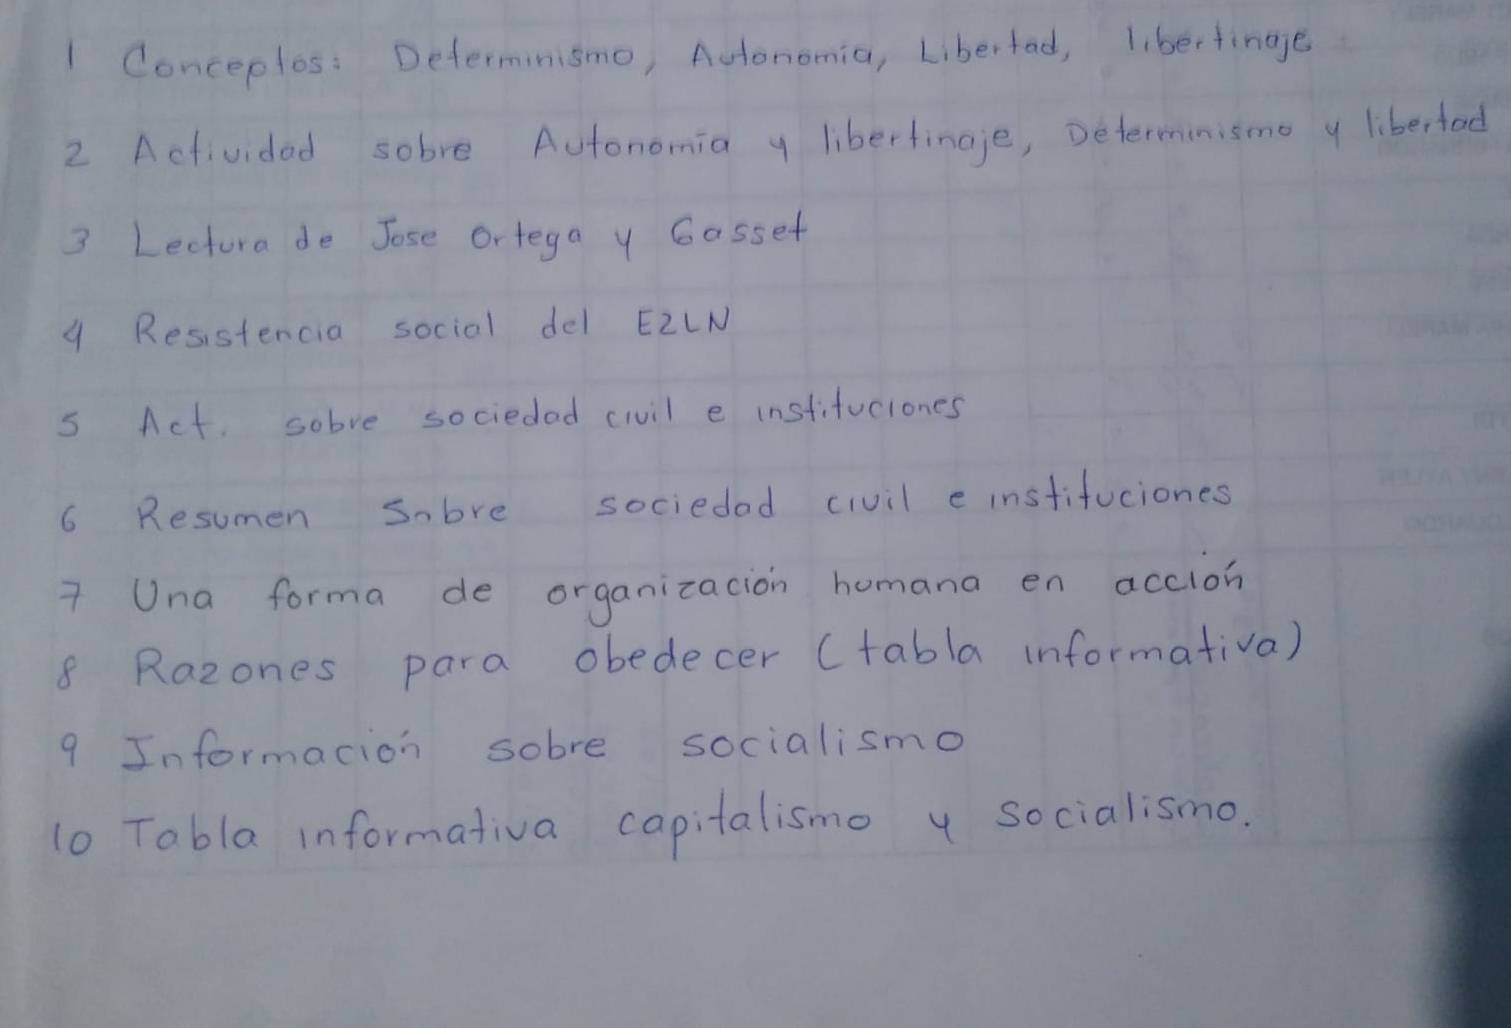 1 Conceptos: Determinismo, Autonomia, Libertad, libertinaje
2 Actividad sobre Autonomía y libertinaje, Determinismo y libertad
3 Lectura de Jose Ortega y Gasset
4 Resistencia social del EZLN
5 Act. sobre sociedad civil e instituciones
6 Resumen Sobre sociedad civil e instituciones
7 Una forma de organización humana en acción
8 Razones para obedecer (tabla informativa)
9 Información sobre socialismo
10 Tabla informativa capitalismo y socialismo.